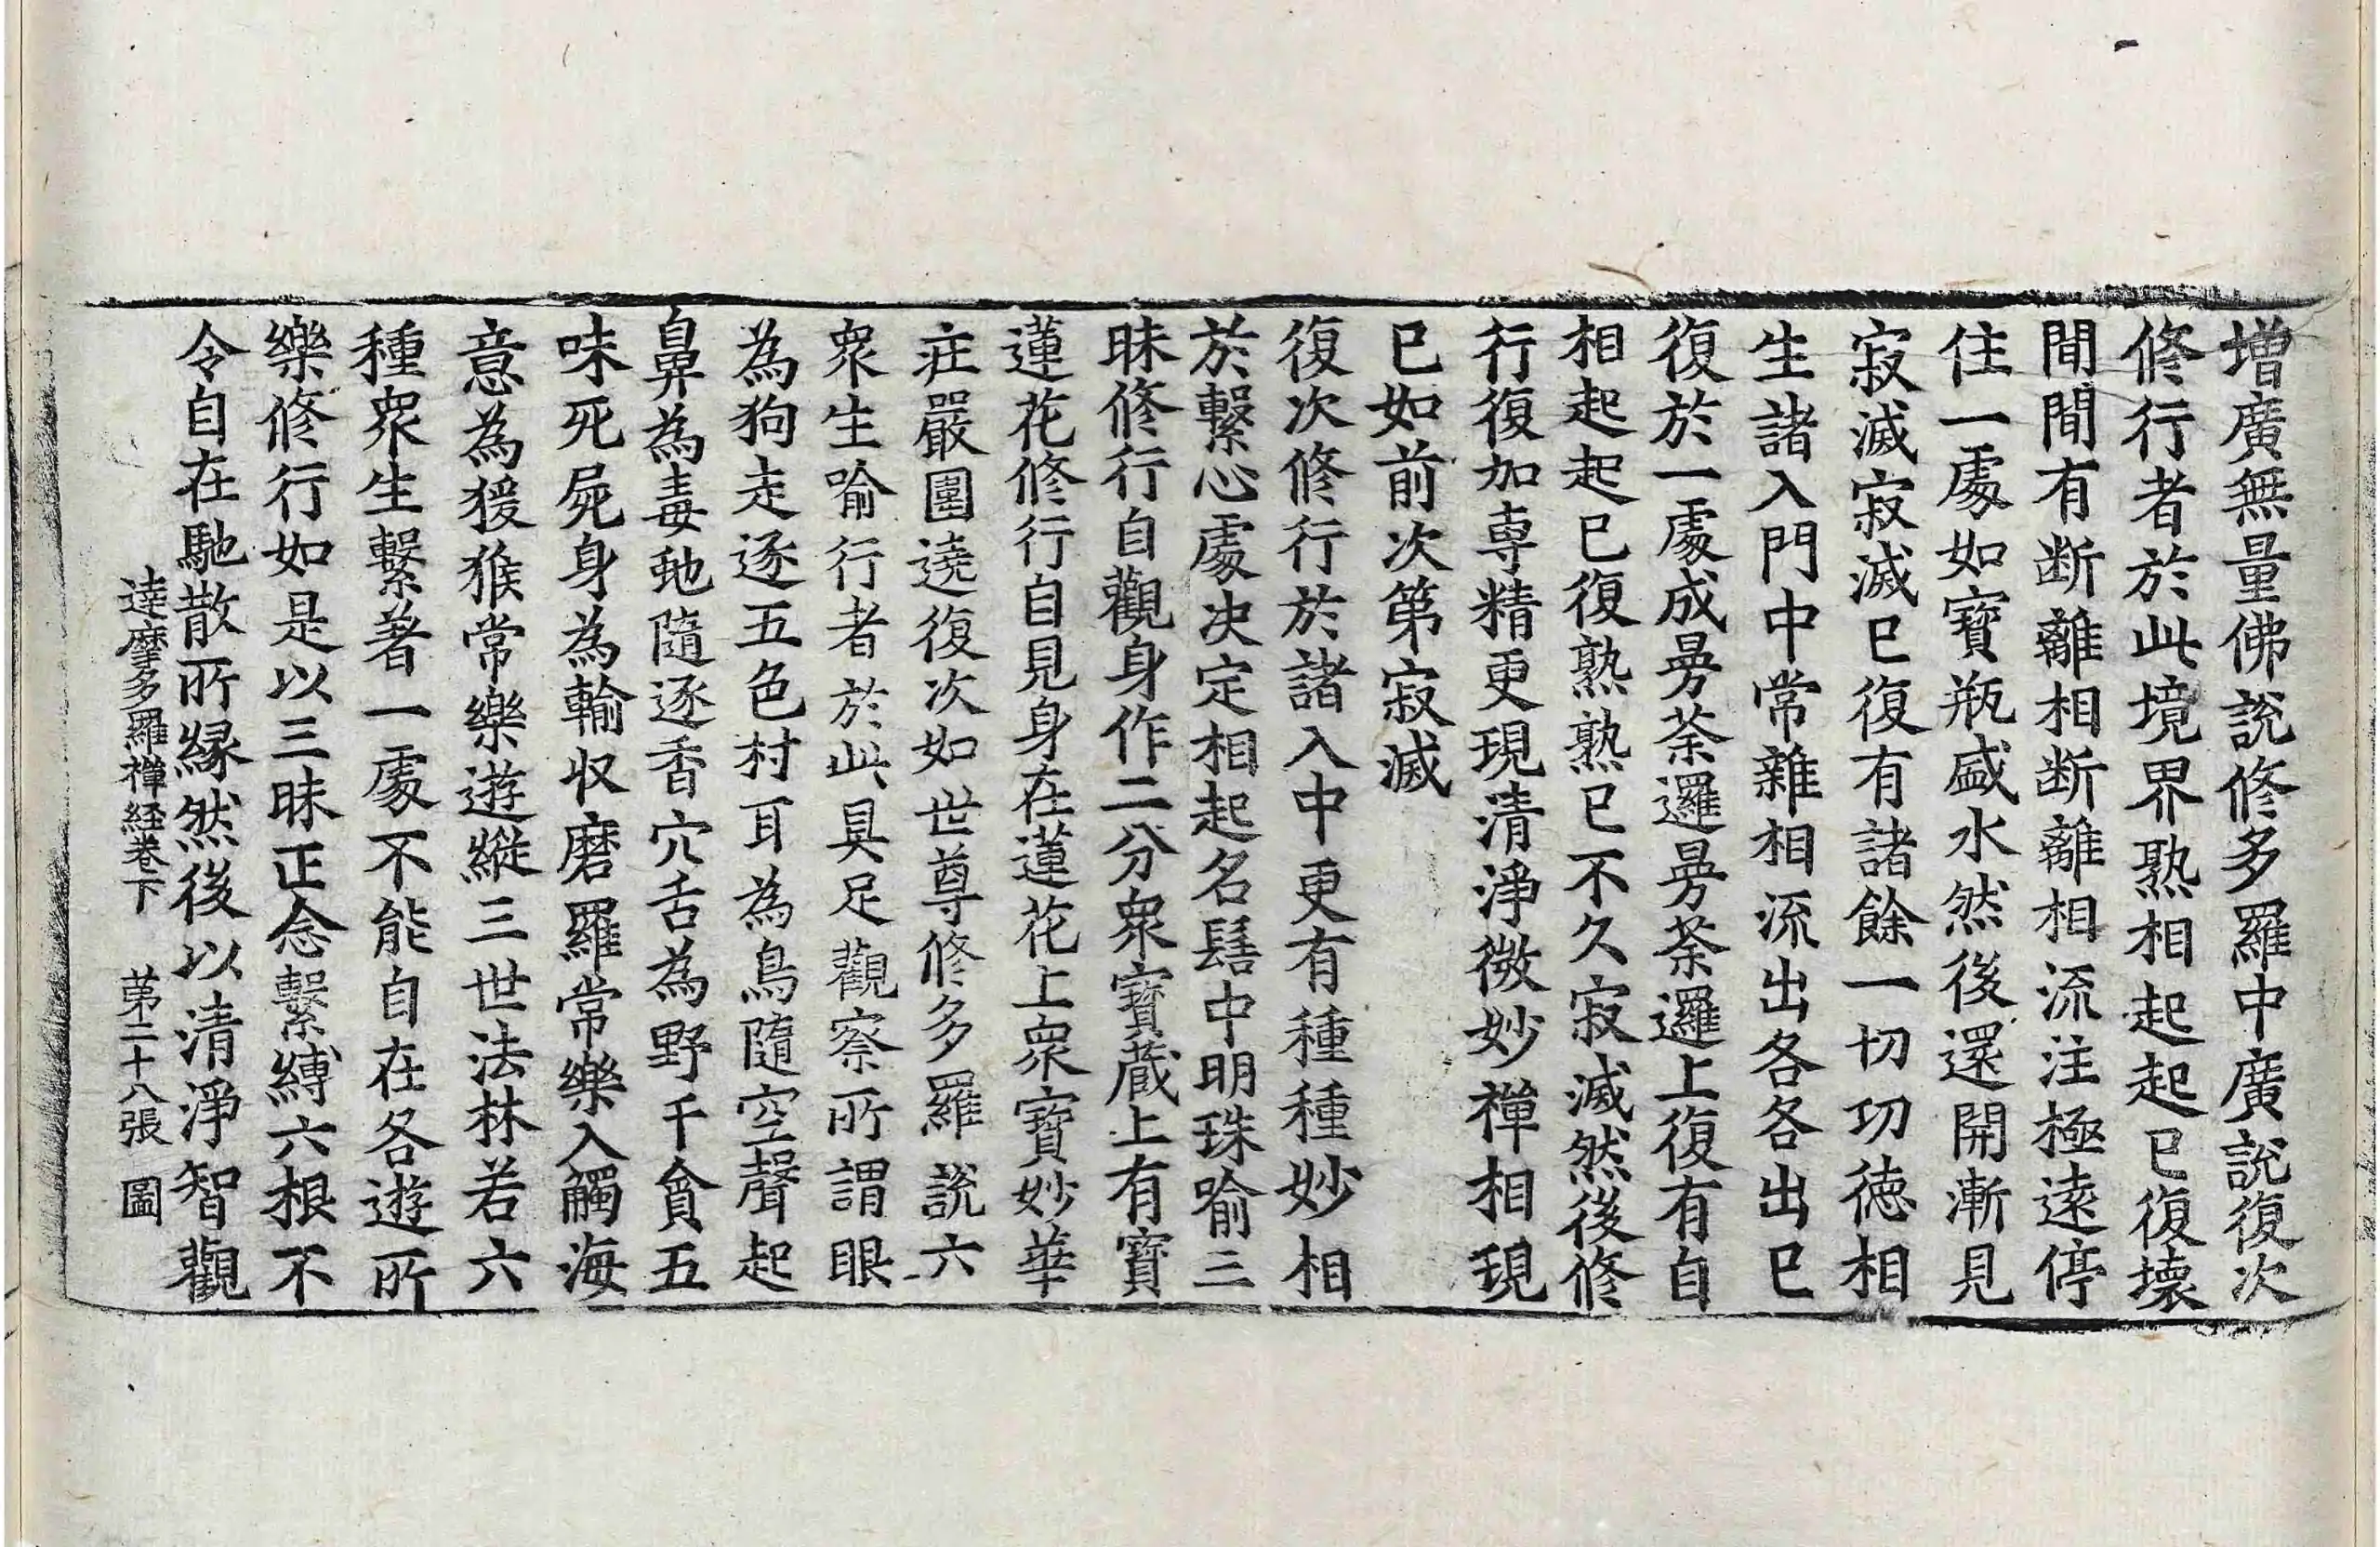 増廣無量佛說修多羅中廣說復次
修行者於此境界熟相起起已復壞
間間有断離相断離相流注極遠停
住一處如寶瓶盛水然後還開漸見
寂滅寂滅已復有諸餘一切功德相
生諸入門中常雜相流出各各出已
復於一處成曼荼邏曼荼邏上復有自
相起起已復熟熟已不久寂滅然後修
行復加専精更現清淨微妙禪相現
已如前次第寂滅
復次修行於諸入中更有種種妙相
於繫心處决定相起名髻中明珠喻三
昧修行自觀身作二分衆寶蔵上有寶
蓮花修行自見身在蓮花上衆寶妙華
疘嚴圍遶復次如世尊修多羅說六
衆生喻行者於此具足觀察所謂眼
為狗走逐五色村耳為鳥隨空聲起
鼻為毒虵隨逐香穴舌為野干貪五
味死屍身為輸収磨羅常樂入觸海
意為猨猴常樂遊縱三世法林若六
種衆生繫著一處不能自在各遊所
樂修行如是以三昧正念繫縛六根不
令自在馳散所緣然後以清淨智觀
達摩多羅禪経巻下 第二十八張 圖